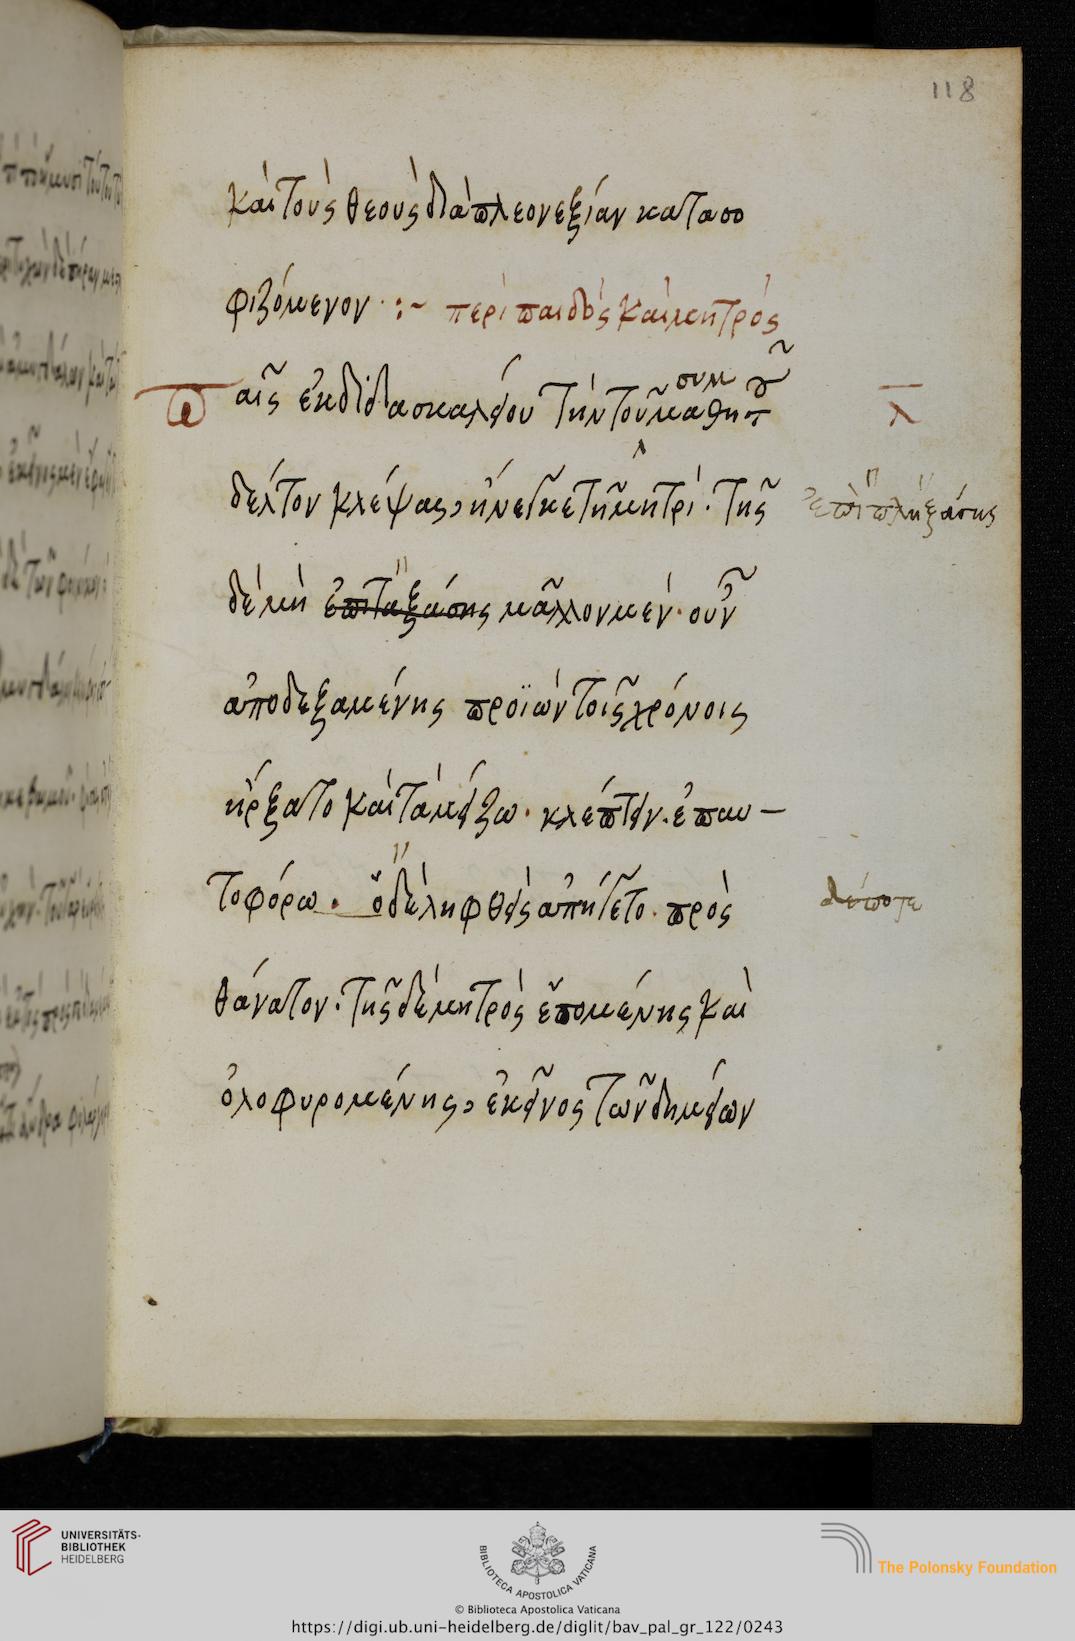 118
καὶ τοὺς θεοὺς διὰ πλεονεξίαν κατασο
φιζόμενον :~ περὶ παιδὸς καὶ μητρός
Παῖς ἐκ διδασκαλείου τὴν τοῦ συμμαθητοῦ
λ
δέλτον κλέψας, ἤνεγκε τῆ μητρί. τῆς
ἐπιπληξάσης
δὲ μὴ ἐπιταξάσης μᾶλλον μὲν οὖν
ἀποδεξαμένης προϊὼν τοῖς χρόνοις
ἤρξατο καὶ τὰ μείζω κλέπτειν. ἐπαυ-
τοφόρω. ὁ δὲ ληφθεὶς ἀπήγετο πρὸς
δέ ποτε
θάνατον. τῆς δὲ μητρὸς ἑπομένης καὶ
ὀλοφυρομένης, ἐκεῖνος τῶν δημείων
UNIVERSITÄTS-
BIBLIOTHEK
HEIDELBERG
BIBLIOTECA APOSTOLICA VATICANA
The Polonsky Foundation
© Biblioteca Apostolica Vaticana
https://digi.ub.uni-heidelberg.de/diglit/bav_pal_gr_122/0243